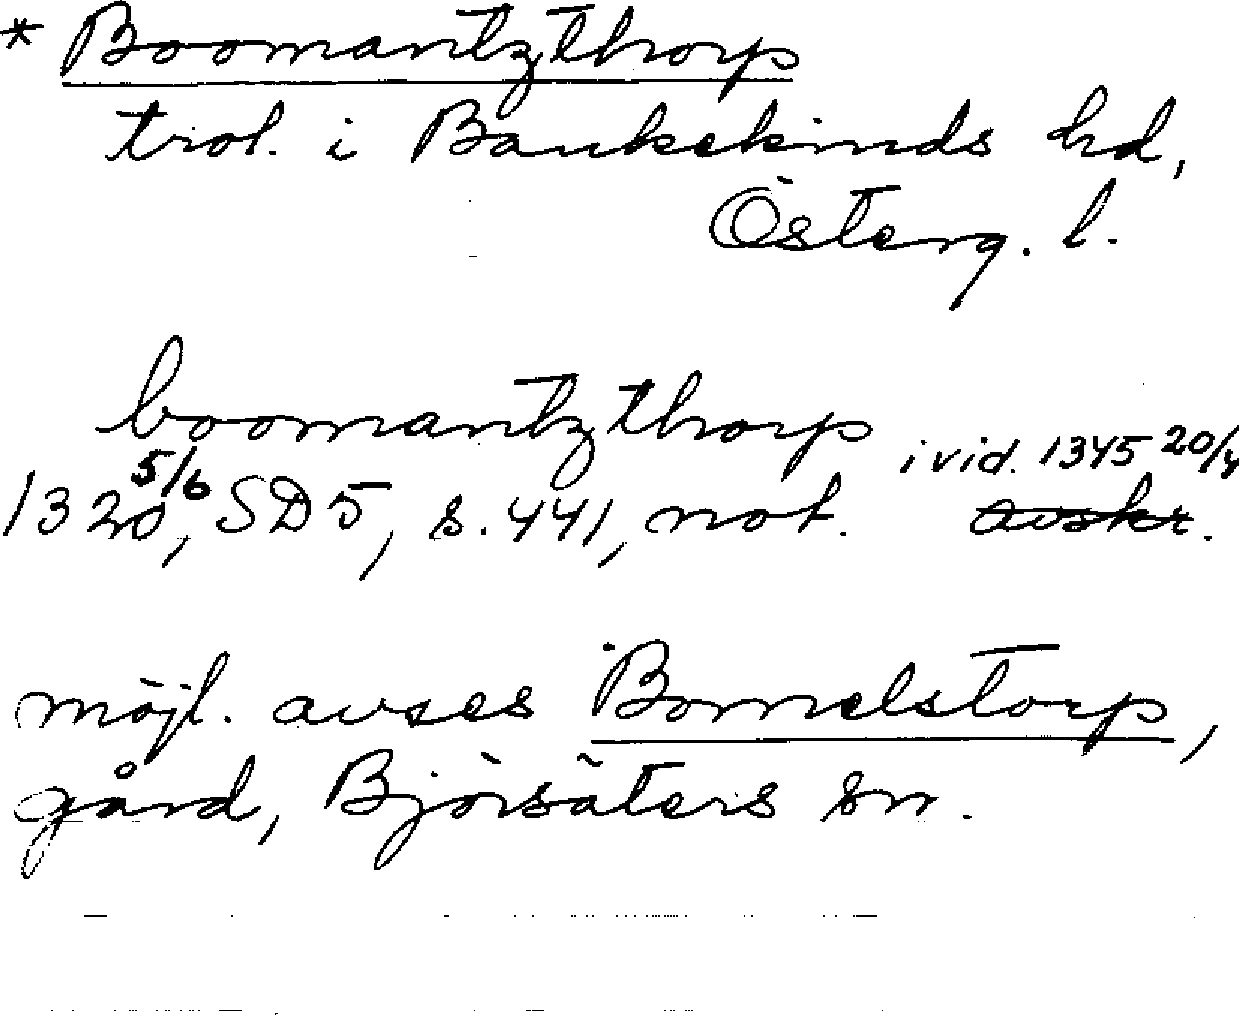 * Boomantzthorp
trol. i Bankekinds hd,
Österg. l.
boomantzthorp i vid. 1345 20/4
1320 5/6, SD 5, s. 441, not. avskr.
möjl. avses Bomelstorp,
gård, Björsäters sn.